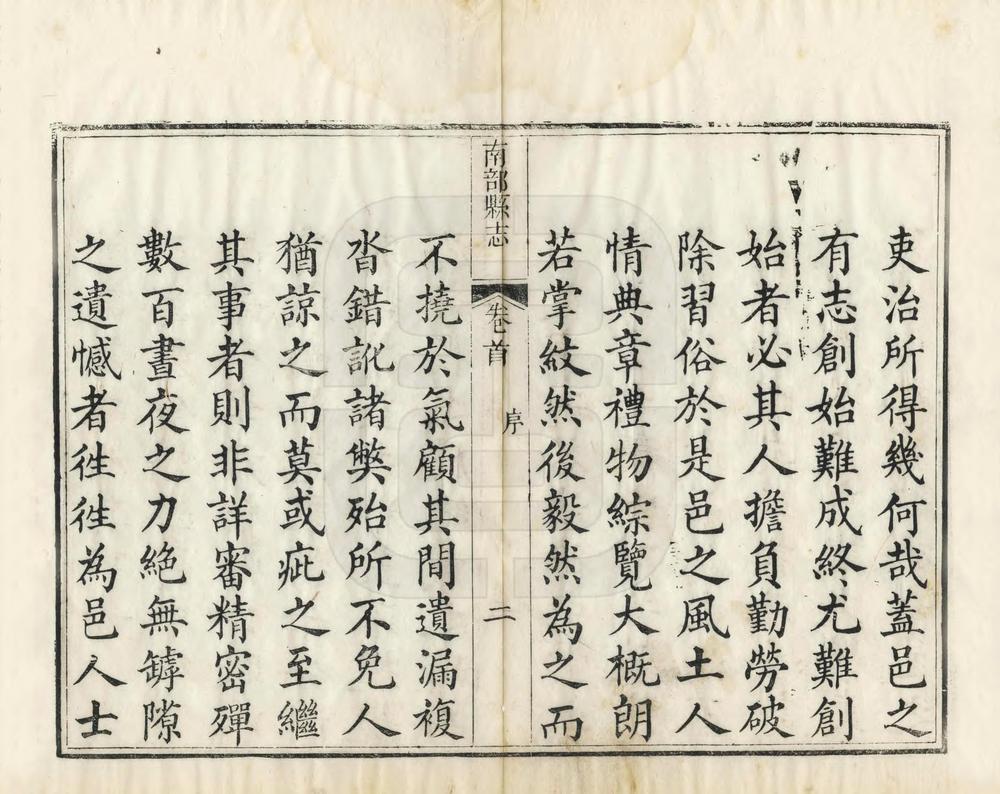 吏治所得幾何哉蓋邑之
有志創始難成終尤難創
始者必其人擔負勤勞破
除習俗於是邑之風土人
情典章禮物綜覽大概朗
若掌紋然後毅然為之而
南部縣志
卷首
序
二
不撓於氣顧其間遺漏複
沓錯訛諸獘殆所不免人
猶諒之而莫或疵之至繼
其事者則非詳審精密殫
數百晝夜之力絕無罅隙
之遺憾者徃徃為邑人士